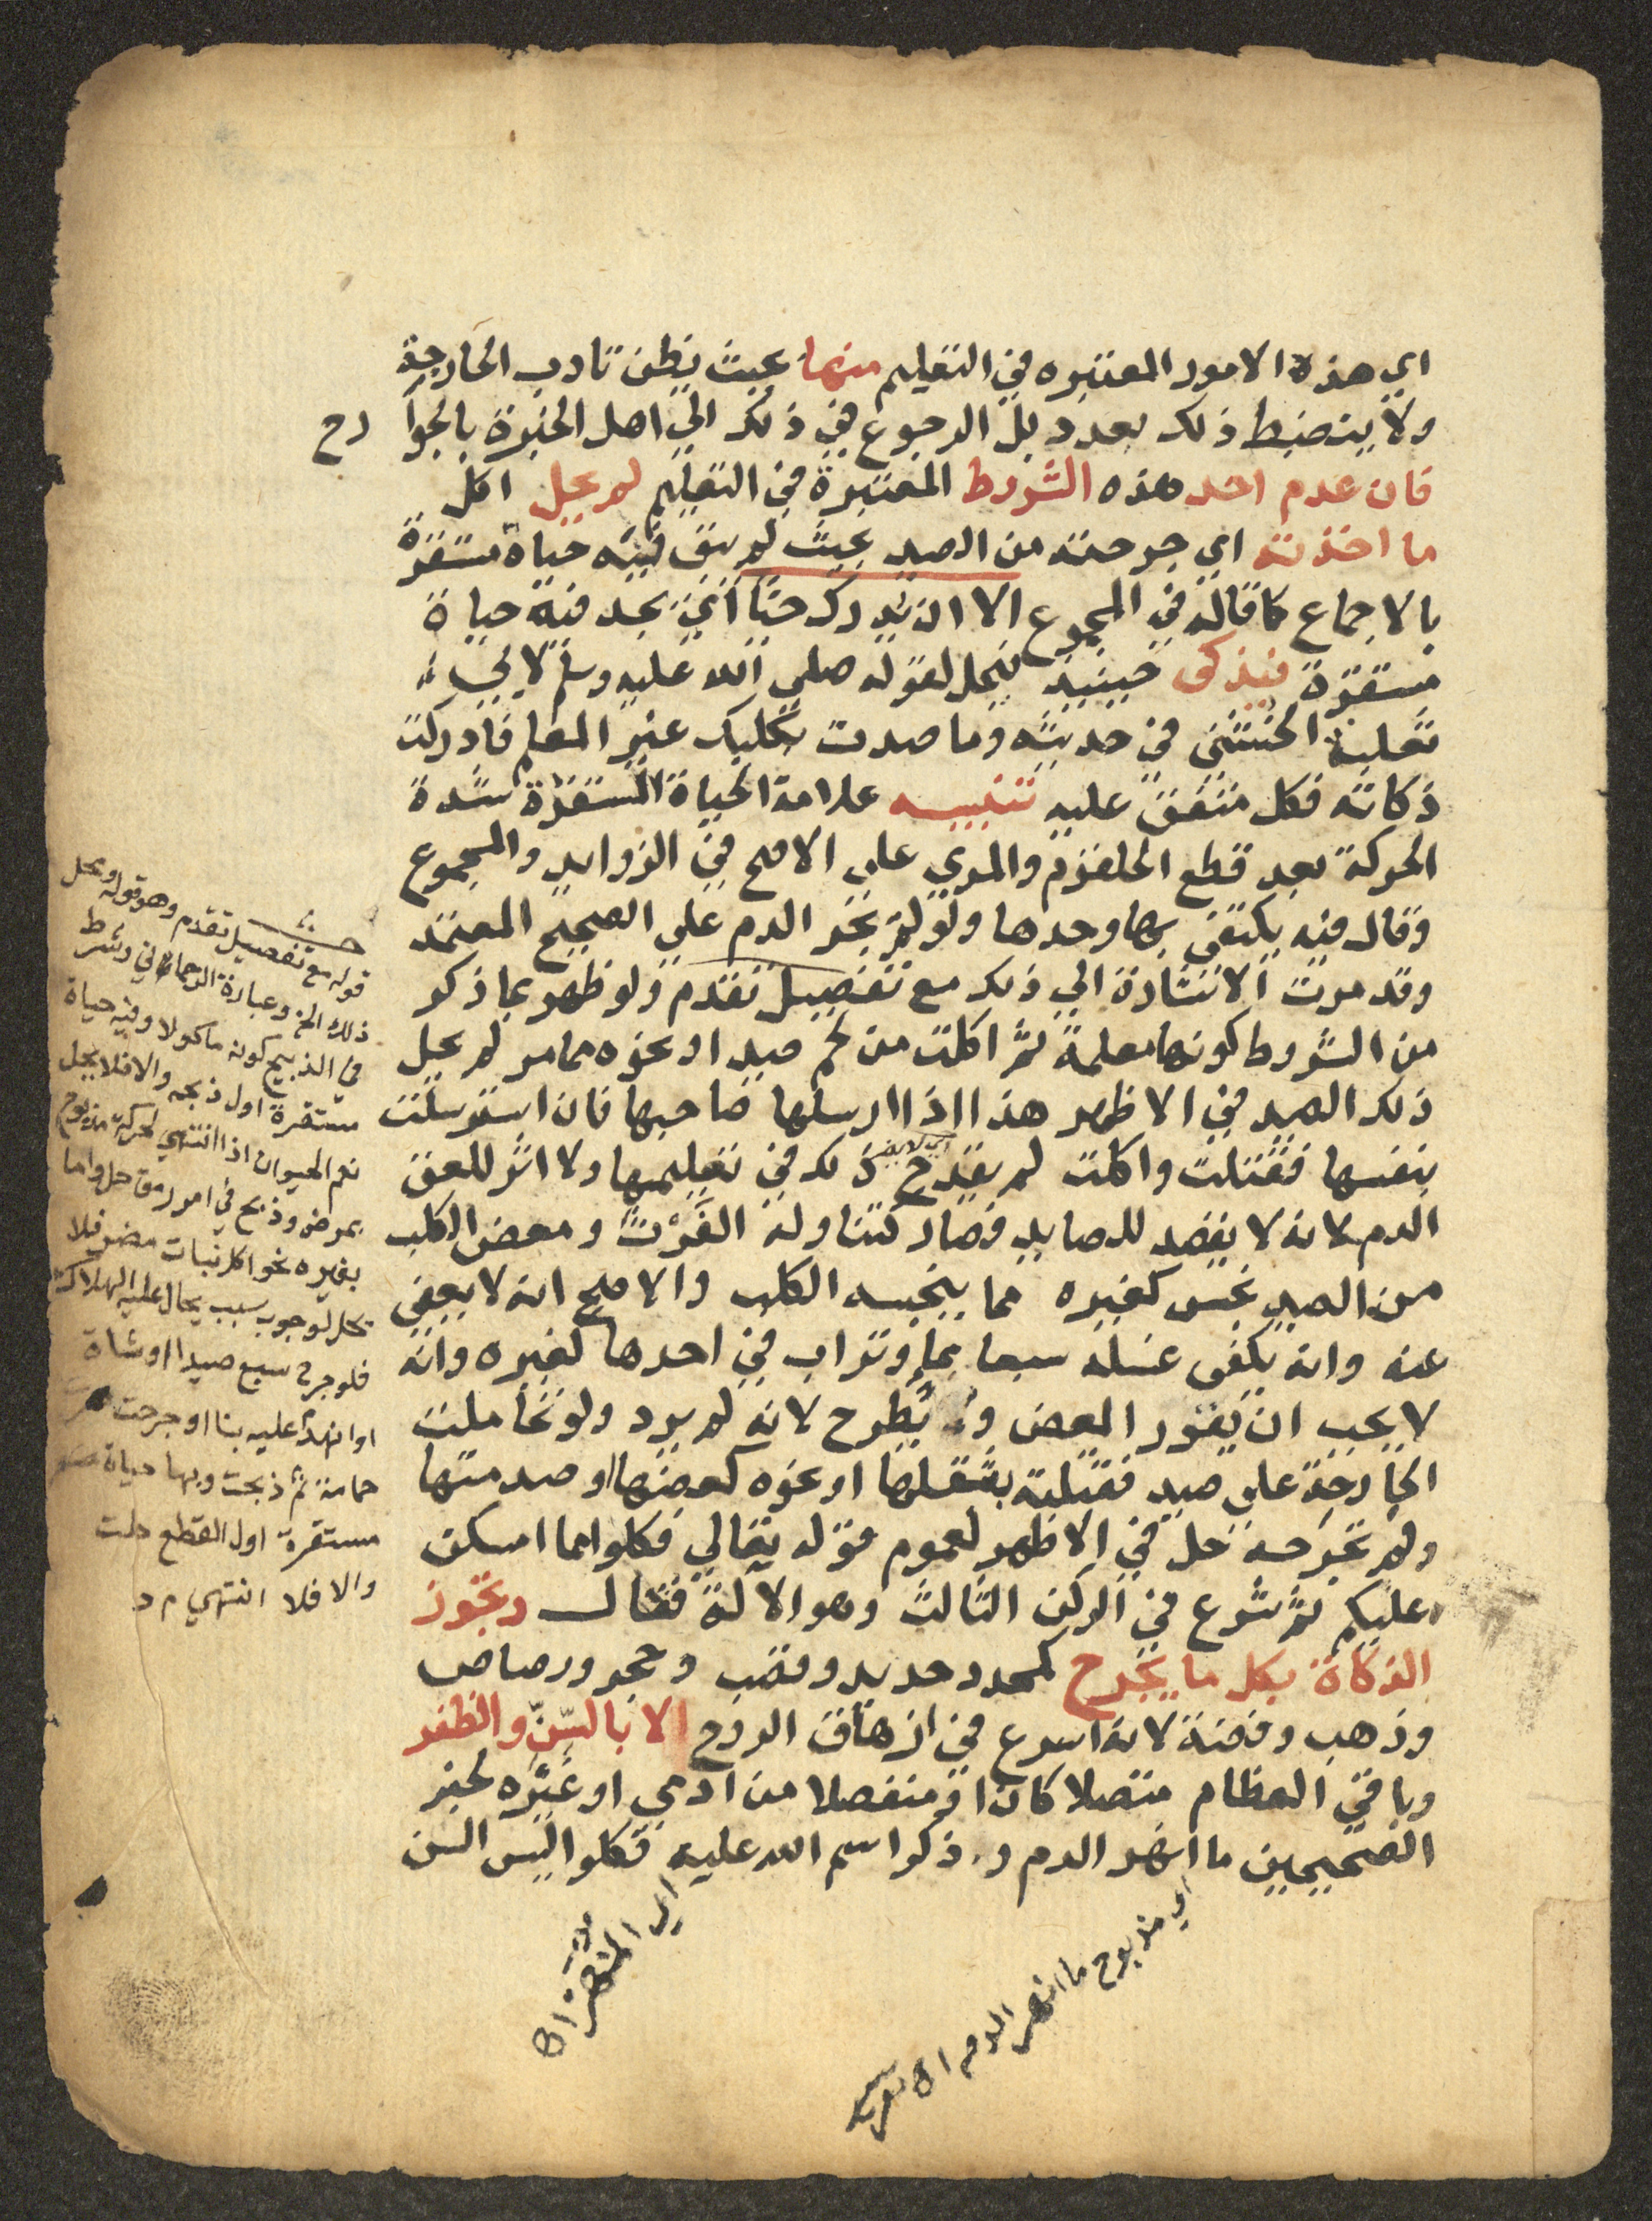 اي هذه الامور المعتبره في التعليم منها بحيث يظن تادب الجارحة
ولا ينضبط ذلك بعدد بل الرجوع في ذلك الي اهل الخبرة بالجوا رح
فان عدم احد هذه الشروط المعتبرة في التعليم لم يحل اكل
ما اخذته اي جرحته من الصيد بحيث لم يبق فيه حياة مستقرة
بالاجماع كما قاله في المجموع الا ان يدرك حيا اي يجد فيه حياة
مستقرة فيذكى حينيذ فيحل لقوله صلي الله عليه وسلم لابي
ثعلبة الخشني في حديثه وما صدت بكلبك غير المعلم فادركت
ذكاته فكل متفق عليه تنبيه علامة الحياة المستقرة شدة
الحركة بعد قطع الحلقوم والمري علي الاصح في الزوايد والمجموع
وقال فيه يكتفى بها وحدها ولو لم يجر الدم علي الصحيح المعتمد
وقد مرت الاشارة الي ذلك مع تفصيل تقدم ولو ظهر بما ذكر
من الشروط كونها معلمة ثم اكلت من لحم صيد او نحوه مما مر لم يحل
ذلك الصيد في الاظهر هذا اذا ارسلها صاحبها فان استرسلت
بنفسها فقتلت واكلت لم يقدح ذلك في تعليمها ولا اثر للعق
الدم لانه لا يقصد للصايد فصار كتناوله الفرث ومعض الكلب
من الصيد نجس كغيره مما ينجسه الكلب والاصح انه لا يعفي
عنه وانه يكفي غسله سبعا بماء وتراب في احدها كغيره وانه
لا يجب ان يقور المعض ويطرح لانه لم يرد ولو تحاملت
الجارحة علي صيد فقتلته بثقلها او نحوه كعضها او صدمتها
ولم تجرحه حل في الاظهر لعموم قوله تعالي فكلوا مما امسكن
عليكم ثم شرع في الركن الثالث وهو الالة فقال وتجوز
الذكاة بكل ما يجرح كمحدد حديد وقصب وحجر ورصاص
وذهب وفضة لانه اسرع في ازهاق الروح الا بالسن والظفر
وباقي العظام متصلا كان او منفصلا من ادمي او غيره لخبر
الصحيحين ما انهر الدم وذكر اسم الله عليه فكلوا ليس السن
اي لا يضر
قوله مع تفصيل تقدم وهو قوله ومحل
ذلك الخ وعبارة الرحماني وشرط
في الذبيح كونه ماكولا وفيه حياة
مستقرة اول ذبحه والا فلا يحل
نعم الحيوان اذا انتهي لحركة مذبوح
بمرض وذبح في اخر رمق حل واما
بغيره نحو اكل نبات مضر فلا
يحل لوجود سبب يحال عليه الهلاك
فلو جرح سبع صيدا او شاة
او انهدم عليه بنا او جرحت هرة
حمامة ثم ذبحت وبها حياة
مستقرة اول القطع حلت
والا فلا انتهي م د
اي المنهر
اي مذبوح ما انهر الدم